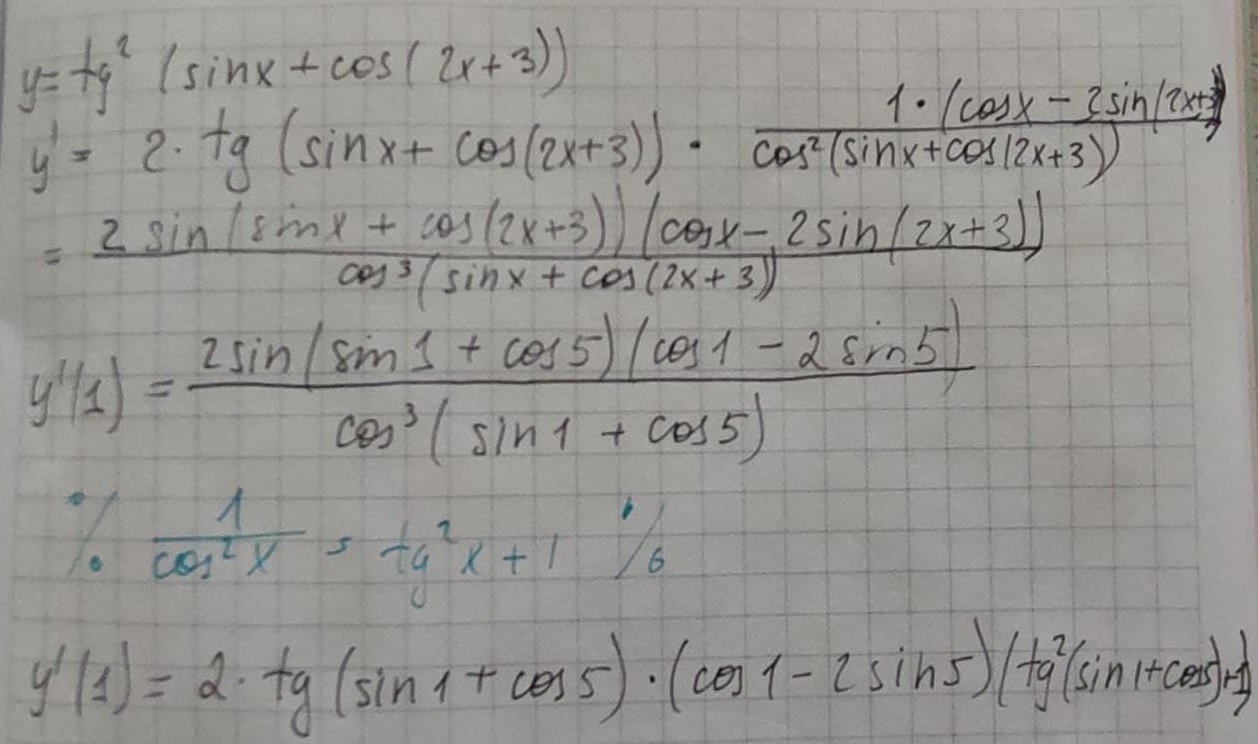 y = tg² (sinx + cos(2x+3))
y' = 2 · tg (sinx + cos(2x+3)) · 1·(cosx − 2sin(2x+3) / cos²(sinx+cos(2x+3))
= 2 sin(sinx + cos(2x+3))(cosx − 2sin(2x+3)) / cos³(sinx + cos(2x+3))
y'(1) = 2sin(sin1 + cos5)(cos1 − 2sin5) / cos³(sin1 + cos5)
% 1 / cos²x = tg²x + 1 %
y'(1) = 2 · tg (sin1 + cos5) · (cos1 − 2sin5)(tg²(sin1+cos5)+1)